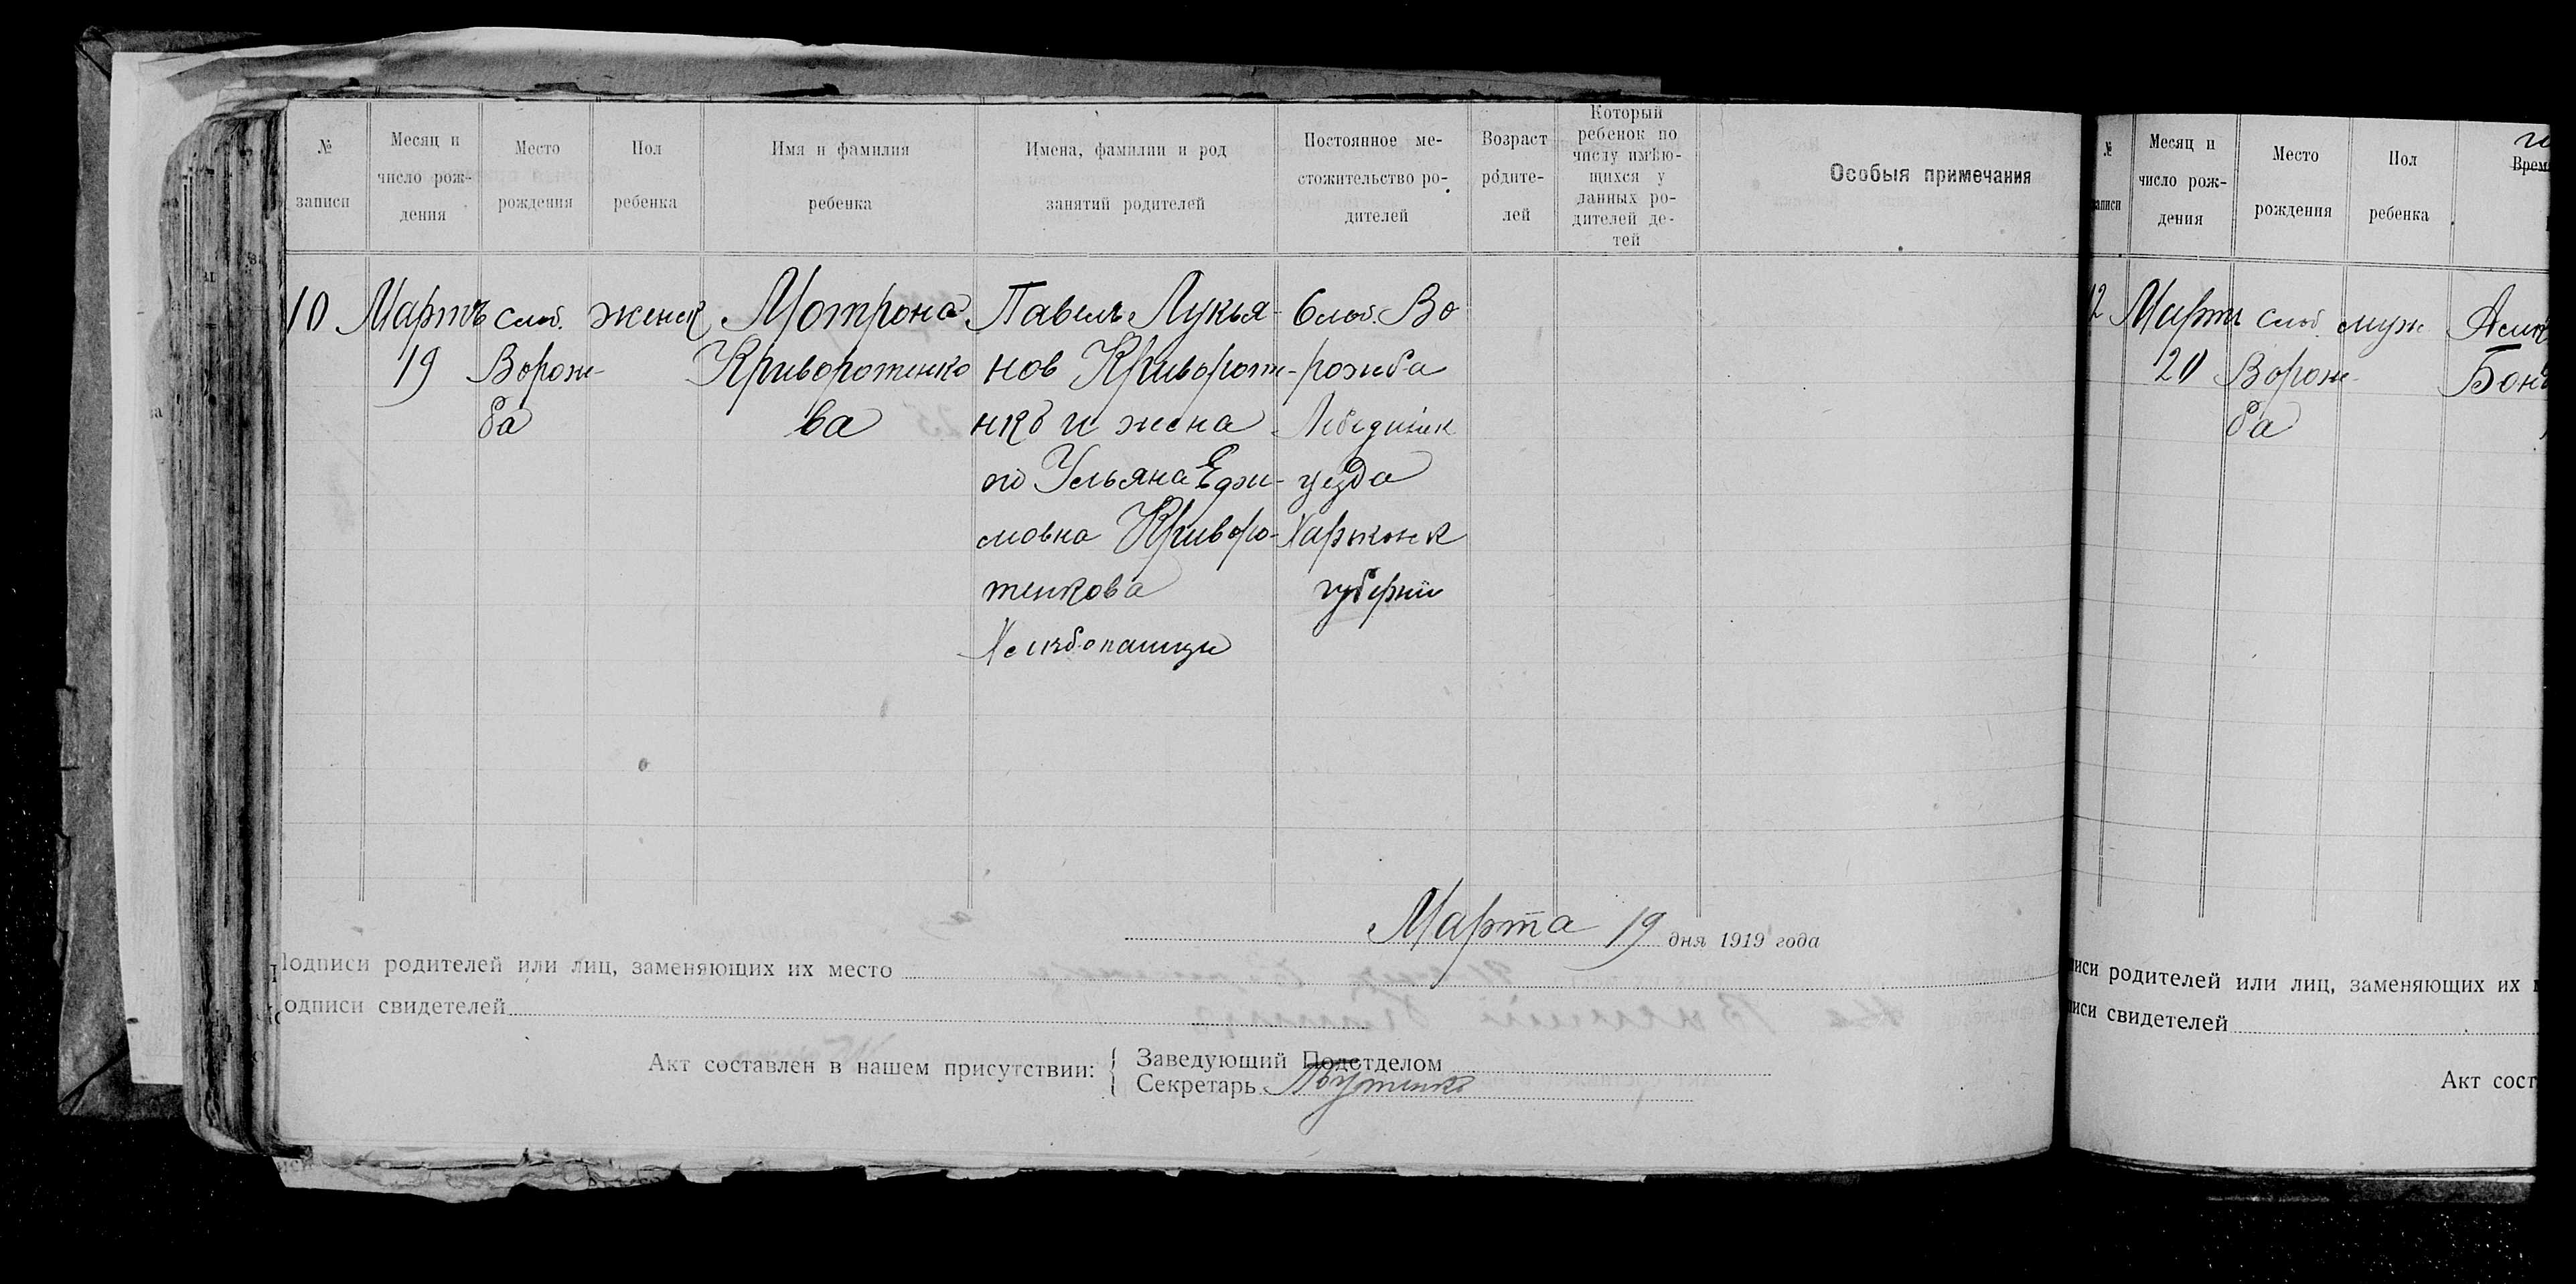 № записи
Месяц и число рождения
Место рождения
Пол ребенка
Имя и фамилия ребенка
Имена, фамилии и род занятий родителей
Постоянное местожительство родителей
Возраст родителей
Который ребенок по числу имѣющихся у данных родителей детей
Особыя примечания
10
Мартъ
19
слоб.
Ворож-
ба
женск
Мотрона
Криворотенко
ва
Павелъ Лукья-
нов Кривороте-
нко и жена
его Ульяна Ефи-
мовна Криворо-
тенкова
Хлебопашцы
Слоб. Во
рожба
Лебединск
уезда
Харьковск
губернии
Марта 19 дня 1919 года
Подписи родителей или лиц, заменяющих их место
одписи свидетелей
Акт составлен в нашем присутствии:
Заведующий Подотделом
Секретарь
№
аписи
Месяц и
число рож-
дения
Место
рождения
Пол
ребенка
Врем
12
Мартъ
20
слоб
Ворож-
ба
муж
писи родителей или лиц, заменяющих их
писи свидетелей
Акт сост